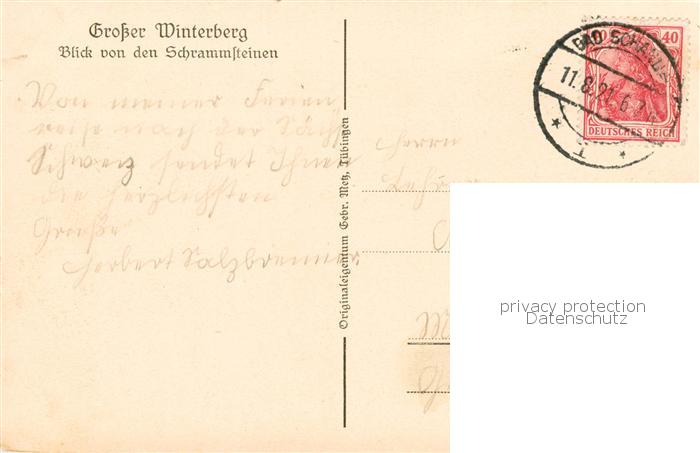 Großer Winterberg
Blick von den Schrammsteinen
Von meiner Ferien
reise nach der Sächs
Schweiz sendet Ihnen
die herzlichsten
Grüße
Herbert Salzbrenner
Originaleigentum Gebr. Metz, Tübingen
Herrn
BAD SCHANDAU
11.8.21. 6-7
40
DEUTSCHES REICH
privacy protection
Datenschutz